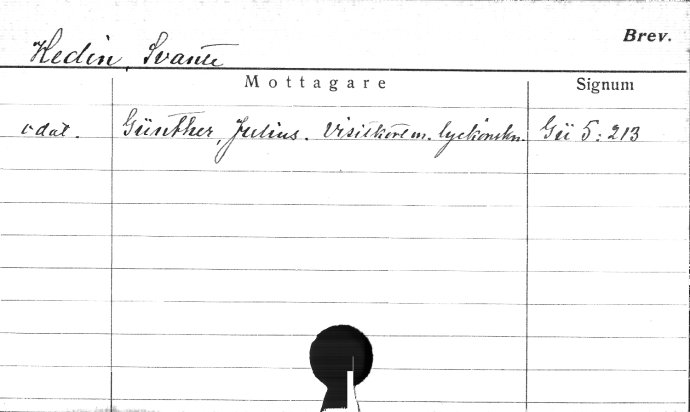 Brev.
Hedin, Svante
Mottagare Signum
odat. Günther, Julius. Visitkort m. lyckönskn. Gü 5:213